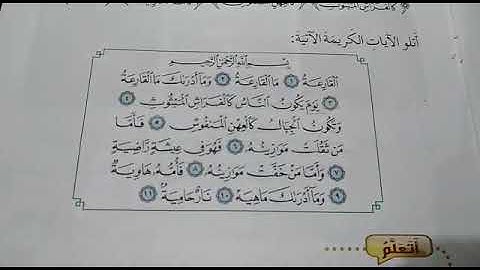 كَالْفَرَاشِ الْمَبْثُوثِ
أَتلو الآياتِ الكَريمَةَ الآتِيَةَ:
بِسْمِ اللَّهِ الرَّحْمَٰنِ الرَّحِيمِ
الْقَارِعَةُ ١ مَا الْقَارِعَةُ ٢ وَمَا أَدْرَىٰكَ مَا الْقَارِعَةُ
٣ يَوْمَ يَكُونُ النَّاسُ كَالْفَرَاشِ الْمَبْثُوثِ ٤
وَتَكُونُ الْجِبَالُ كَالْعِهْنِ الْمَنفُوشِ ٥ فَأَمَّا
مَن ثَقُلَتْ مَوَٰزِينُهُۥ ٦ فَهُوَ فِي عِيشَةٍ رَّاضِيَةٍ
٧ وَأَمَّا مَنْ خَفَّتْ مَوَٰزِينُهُۥ ٨ فَأُمُّهُۥ هَاوِيَةٌ
٩ وَمَا أَدْرَىٰكَ مَا هِيَهْ ١٠ نَارٌ حَامِيَةٌ ١١
أَتَعَلَّمُ